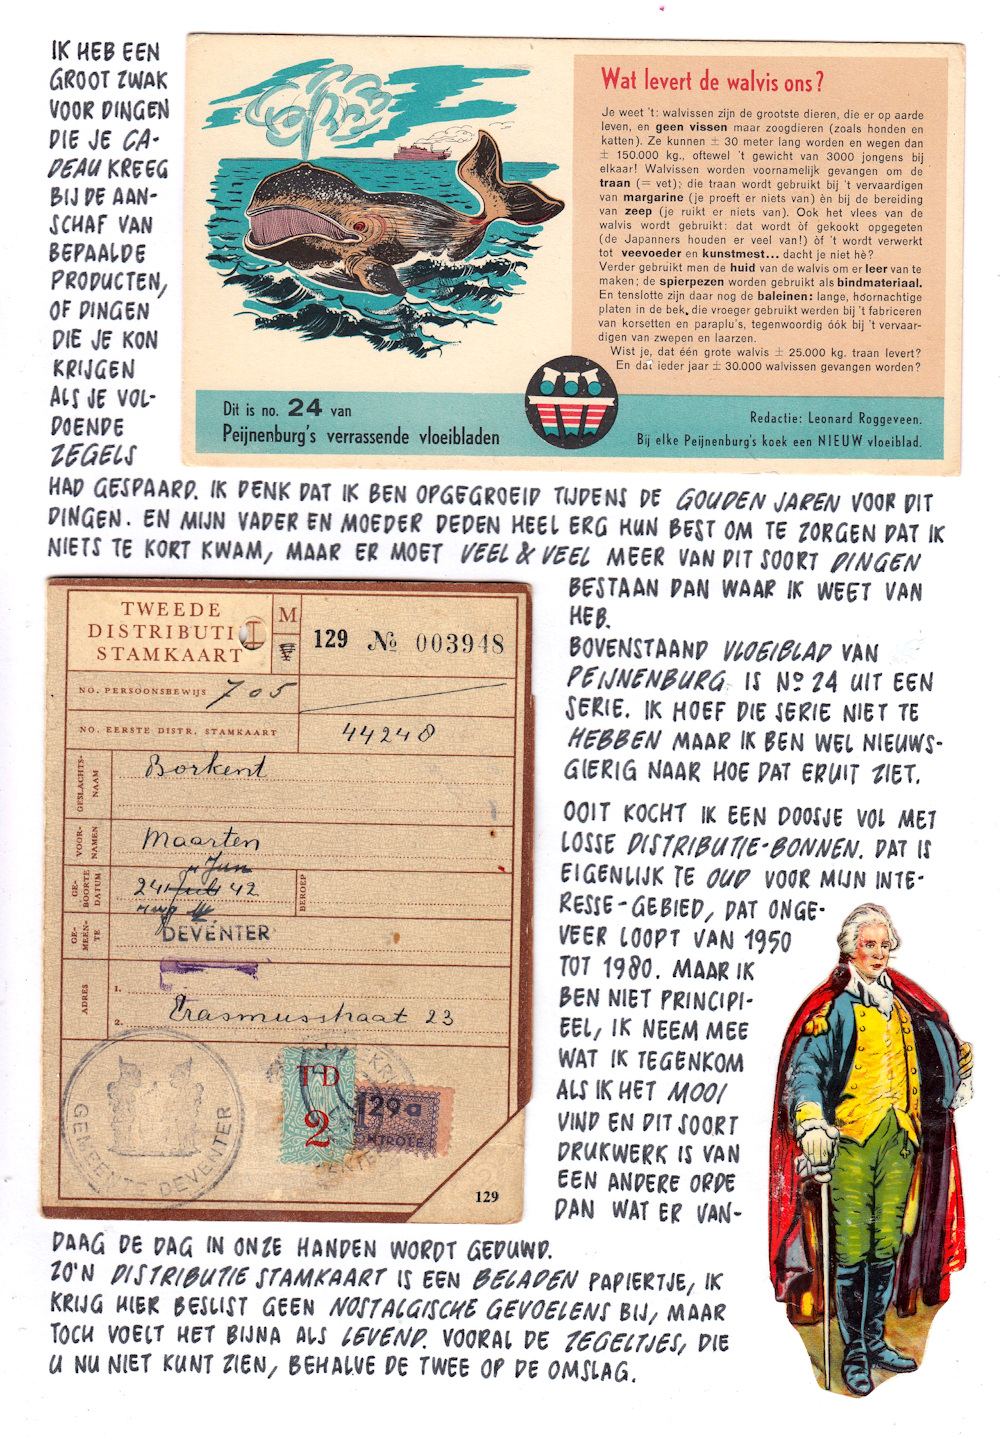 IK HEB EEN
GROOT ZWAK
VOOR DINGEN
DIE JE CA-
DEAU KREEG
BIJ DE AAN-
SCHAF VAN
BEPAALDE
PRODUCTEN,
OF DINGEN
DIE JE KON
KRIJGEN
ALS JE VOL-
DOENDE
ZEGELS
Wat levert de walvis ons?
Je weet 't: walvissen zijn de grootste dieren, die er op aarde
leven, en geen vissen maar zoogdieren (zoals honden en
katten). Ze kunnen ± 30 meter lang worden en wegen dan
± 150.000 kg., oftewel 't gewicht van 3000 jongens bij
elkaar! Walvissen worden voornamelijk gevangen om de
traan (= vet); die traan wordt gebruikt bij 't vervaardigen
van margarine (je proeft er niets van) èn bij de bereiding
van zeep (je ruikt er niets van). Ook het vlees van de
walvis wordt gebruikt: dat wordt òf gekookt opgegeten
(de Japanners houden er veel van!) òf 't wordt verwerkt
tot veevoeder en kunstmest... dacht je niet hè?
Verder gebruikt men de huid van de walvis om er leer van te
maken; de spierpezen worden gebruikt als bindmateriaal.
En tenslotte zijn daar nog de baleinen: lange, hoornachtige
platen in de bek, die vroeger gebruikt werden bij 't fabriceren
van korsetten en paraplu's, tegenwoordig óók bij 't vervaar-
digen van zwepen en laarzen.
Wist je, dat één grote walvis ± 25.000 kg. traan levert?
En dat ieder jaar ± 30.000 walvissen gevangen worden?
Dit is no. 24 van
Peijnenburg's verrassende vloeibladen
Redactie: Leonard Roggeveen.
Bij elke Peijnenburg's koek een NIEUW vloeiblad.
HAD GESPAARD. IK DENK DAT IK BEN OPGEGROEID TIJDENS DE GOUDEN JAREN VOOR DIT
DINGEN. EN MIJN VADER EN MOEDER DEDEN HEEL ERG HUN BEST OM TE ZORGEN DAT IK
NIETS TE KORT KWAM, MAAR ER MOET VEEL & VEEL MEER VAN DIT SOORT DINGEN
BESTAAN DAN WAAR IK WEET VAN
HEB.
BOVENSTAAND VLOEIBLAD VAN
PEIJNENBURG IS No 24 UIT EEN
SERIE. IK HOEF DIE SERIE NIET TE
HEBBEN MAAR IK BEN WEL NIEUWS-
GIERIG NAAR HOE DAT ERUIT ZIET.
OOIT KOCHT IK EEN DOOSJE VOL MET
LOSSE DISTRIBUTIE-BONNEN. DAT IS
EIGENLIJK TE OUD VOOR MIJN INTE-
RESSE-GEBIED, DAT ONGE-
VEER LOOPT VAN 1950
TOT 1980. MAAR IK
BEN NIET PRINCIPI-
EEL, IK NEEM MEE
WAT IK TEGENKOM
ALS IK HET MOOI
VIND EN DIT SOORT
DRUKWERK IS VAN
EEN ANDERE ORDE
DAN WAT ER VAN-
TWEEDE
DISTRIBUTI
STAMKAART
M
V
129 No 003948
NO. PERSOONSBEWIJS 705
NO. EERSTE DISTR. STAMKAART 44248
GESLACHTS-
NAAM
Borkent
VOOR-
NAMEN
Maarten
GE-
BOORTE
DATUM
Jun
24 Juli 42
BEROEP
GE-
MEEN-
TE
DEVENTER
ADRES
1.
2. Erasmusstraat 23
GEMEENTE DEVENTER
TD
2
129a
CONTROLE
129
DAAG DE DAG IN ONZE HANDEN WORDT GEDUWD.
ZO'N DISTRIBUTIE STAMKAART IS EEN BELADEN PAPIERTJE, IK
KRIJG HIER BESLIST GEEN NOSTALGISCHE GEVOELENS BIJ, MAAR
TOCH VOELT HET BIJNA ALS LEVEND. VOORAL DE ZEGELTJES, DIE
U NU NIET KUNT ZIEN, BEHALVE DE TWEE OP DE OMSLAG.